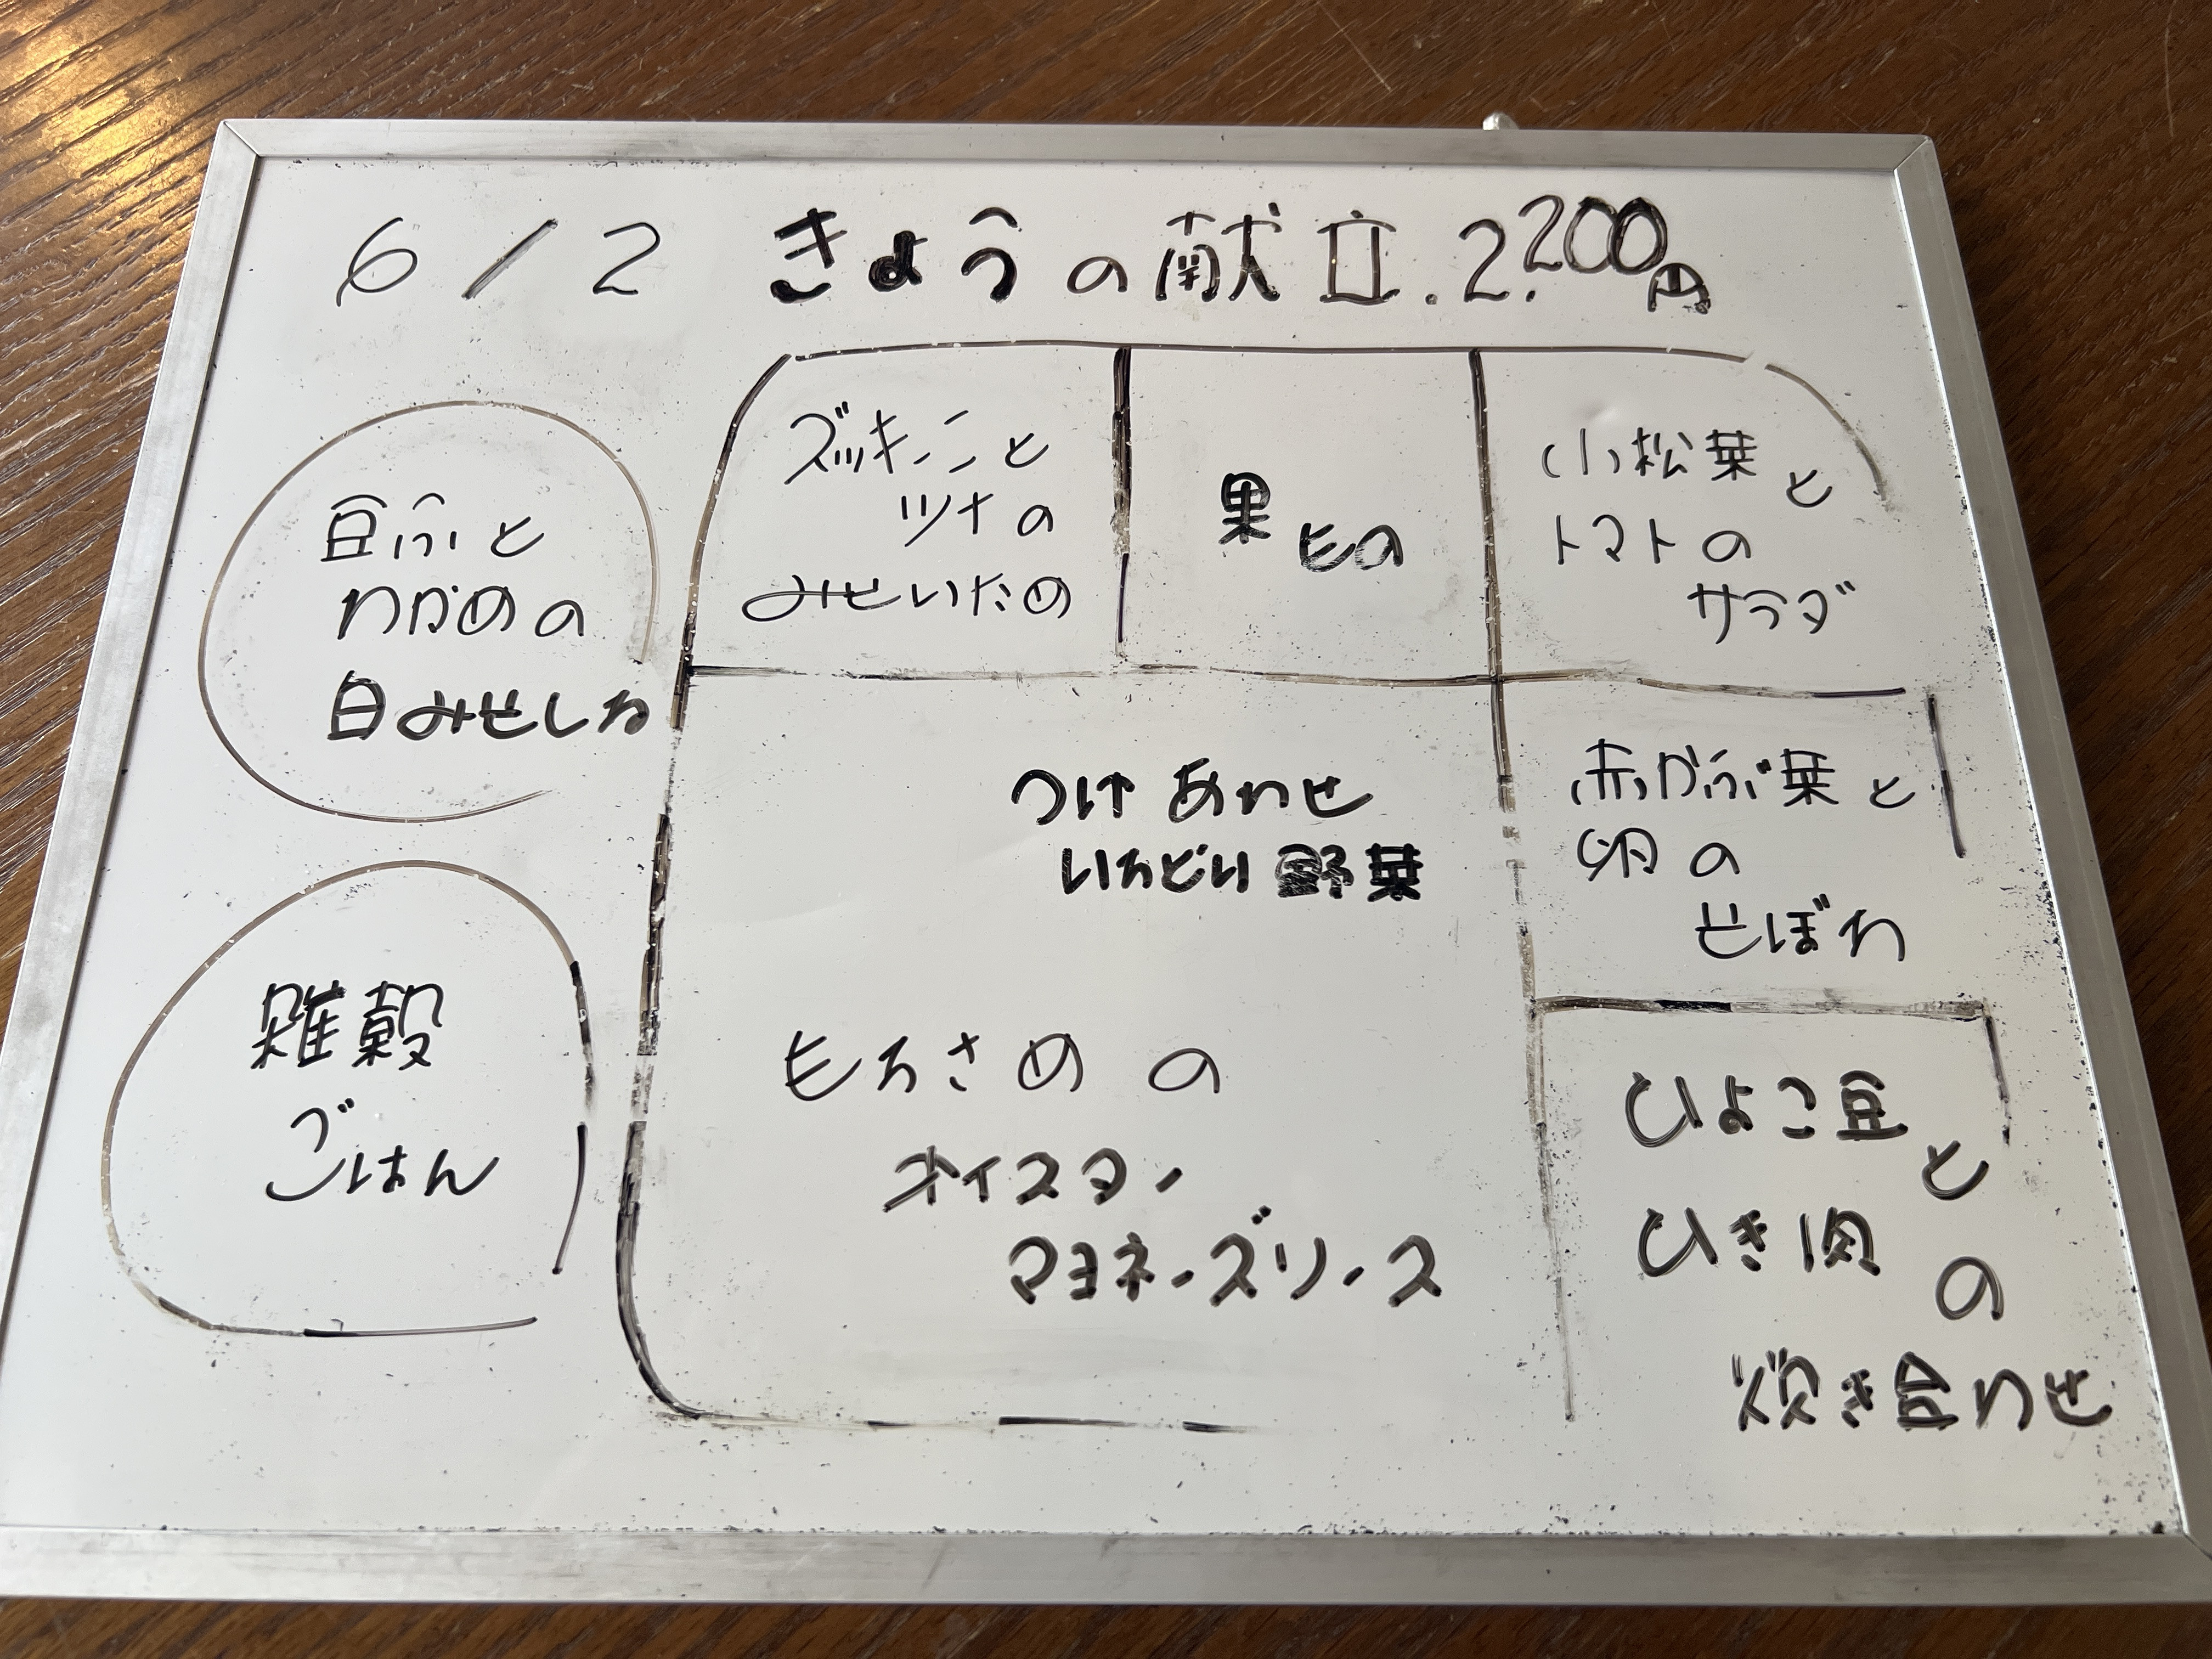 6/2 きょうの献立.2.200円
ズッキーニと
ツナの
みそいため
果もの
小松菜と
トマトの
サラダ
豆ふと
わかめの
白みそしる
つけあわせ
いろどり野菜
赤かぶ菜と
卵の
そぼろ
もろさめの
オイスター
マヨネーズソース
雑穀
ごはん
ひよこ豆と
ひき肉の
炊き合わせ